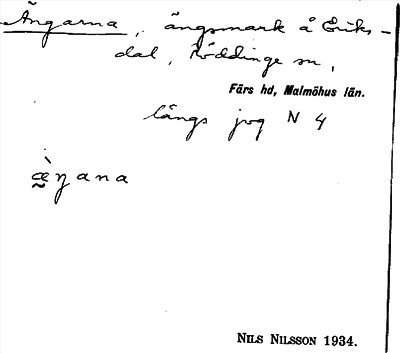 Ängarna, ängsmark å Eriks-
dal, Röddinge sn,
Färs hd, Malmöhus län.
längs jvg N 4
æ̀ŋana
NILS NILSSON 1934.